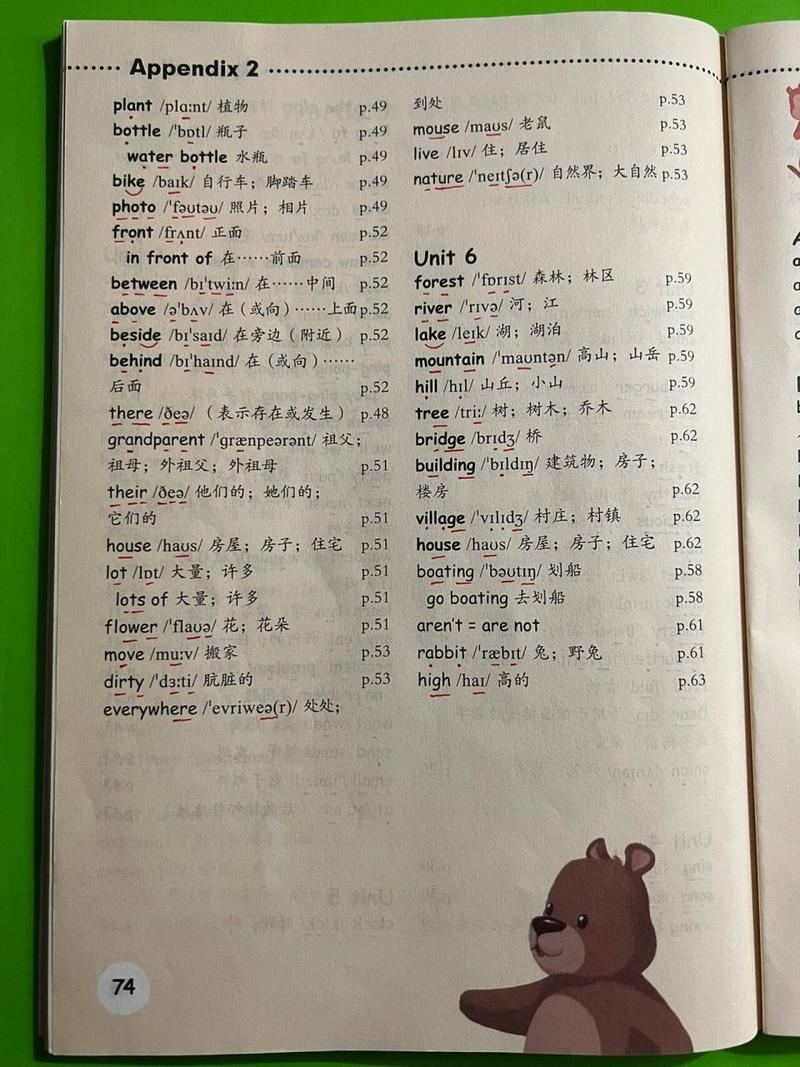 Appendix 2
plant /plɑːnt/ 植物 p.49
bottle /ˈbɒtl/ 瓶子 p.49
water bottle 水瓶 p.49
bike /baɪk/ 自行车；脚踏车 p.49
photo /ˈfəʊtəʊ/ 照片；相片 p.49
front /frʌnt/ 正面 p.52
in front of 在……前面 p.52
between /bɪˈtwiːn/ 在……中间 p.52
above /əˈbʌv/ 在（或向）……上面 p.52
beside /bɪˈsaɪd/ 在旁边（附近） p.52
behind /bɪˈhaɪnd/ 在（或向）……
后面 p.52
there /ðeə/ （表示存在或发生） p.48
grandparent /ˈɡrænpeərənt/ 祖父；
祖母；外祖父；外祖母 p.51
their /ðeə/ 他们的；她们的；
它们的 p.51
house /haʊs/ 房屋；房子；住宅 p.51
lot /lɒt/ 大量；许多 p.51
lots of 大量；许多 p.51
flower /ˈflaʊə/ 花；花朵 p.51
move /muːv/ 搬家 p.53
dirty /ˈdɜːti/ 肮脏的 p.53
everywhere /ˈevriweə(r)/ 处处；
到处 p.53
mouse /maʊs/ 老鼠 p.53
live /lɪv/ 住；居住 p.53
nature /ˈneɪtʃə(r)/ 自然界；大自然 p.53
Unit 6
forest /ˈfɒrɪst/ 森林；林区 p.59
river /ˈrɪvə/ 河；江 p.59
lake /leɪk/ 湖；湖泊 p.59
mountain /ˈmaʊntən/ 高山；山岳 p.59
hill /hɪl/ 山丘；小山 p.59
tree /triː/ 树；树木；乔木 p.62
bridge /brɪdʒ/ 桥 p.62
building /ˈbɪldɪŋ/ 建筑物；房子；
楼房 p.62
village /ˈvɪlɪdʒ/ 村庄；村镇 p.62
house /haʊs/ 房屋；房子；住宅 p.62
boating /ˈbəʊtɪŋ/ 划船 p.58
go boating 去划船 p.58
aren't = are not p.61
rabbit /ˈræbɪt/ 兔；野兔 p.61
high /haɪ/ 高的 p.63
74